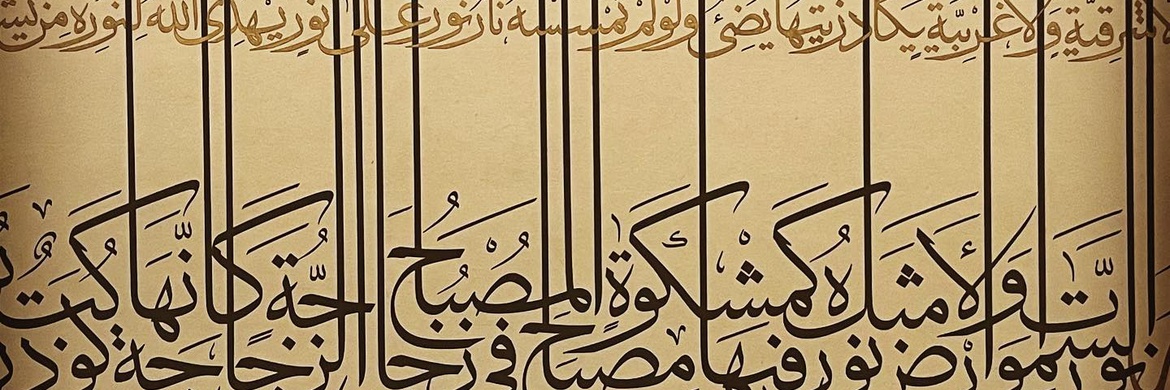 شرقية ولا غربية يكاد زيتها يضئ ولو لم تمسسه نار نور على نور يهدى الله لنوره من
نور السموات والأرض مثل نوره كمشكوة فيها مصباح المصباح في زجاجة الزجاجة كأنها كوكب